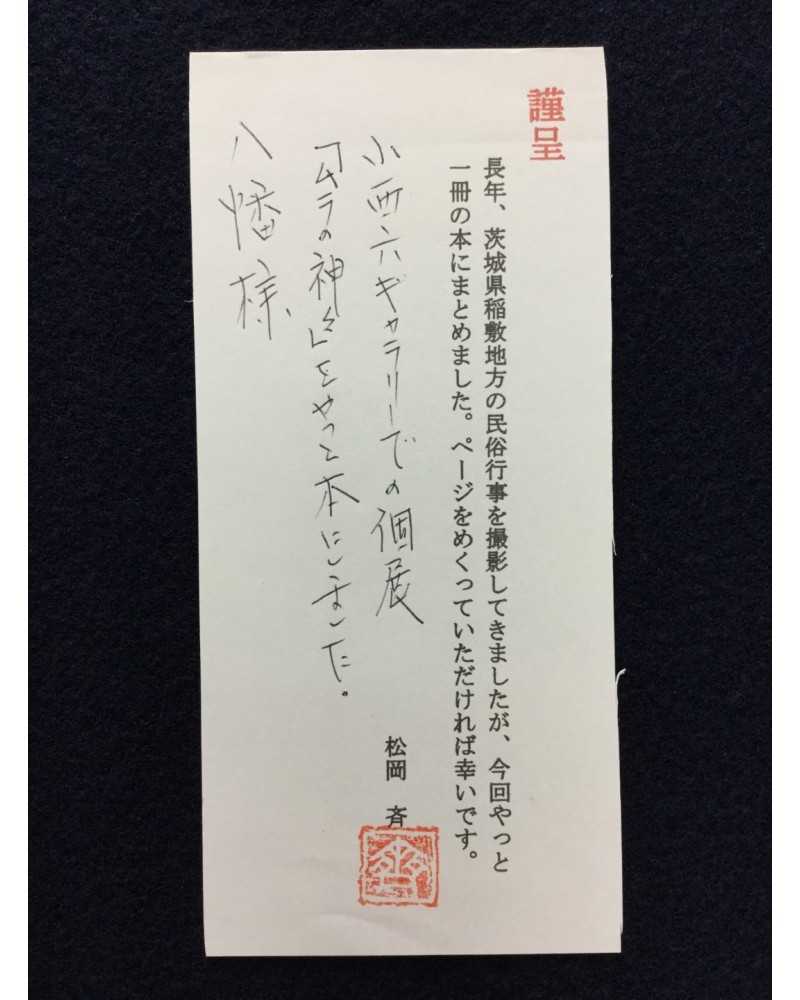 謹呈
長年、茨城県稲敷地方の民俗行事を撮影してきましたが、今回やっと
一冊の本にまとめました。ページをめくっていただければ幸いです。
松岡 斉
小西六ギャラリーでの個展
「ムラの神々」をやっと本にしました。
八幡様